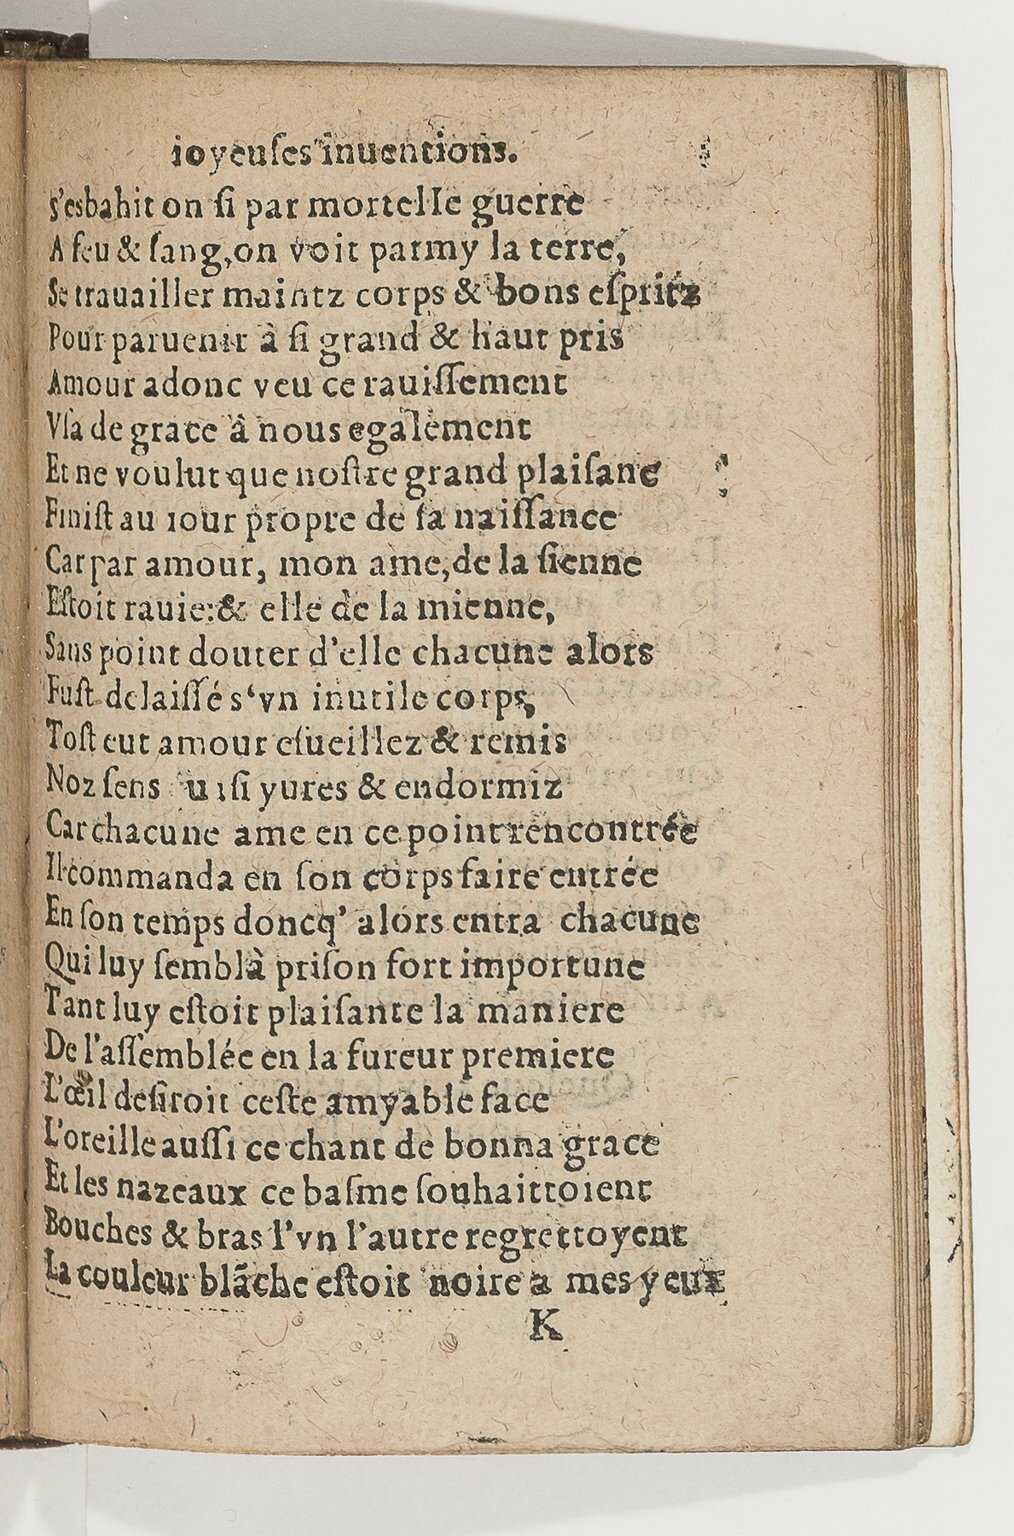 ioyeuſes inuentions.
s'esbahit on ſi par mortelle guerre
A feu & ſang, on voit parmy la terre,
Se trauailler maintz corps & bons eſpritz
Pour paruenir à ſi grand & haut pris
Amour adonc veu ce rauiſſement
Vſa de grace à nous egalement
Et ne voulut que noſtre grand plaiſanc
Finiſt au iour propre de ſa naiſſance
Car par amour, mon ame, de la ſienne
Eſtoit rauie: & elle de la mienne,
Sans point douter d'elle chacune alors
Fuſt delaiſſé s‘vn inutile corps,
Toſt eut amour eſueillez & remis
Noz ſens ſi yures & endormiz
Car chacune ame en ce point rencontrée
Il commanda en ſon corps faire entrée
En ſon temps doncq' alors entra chacune
Qui luy ſemblà priſon fort importune
Tant luy eſtoit plaiſante la maniere
De l'aſſemblée en la fureur premiere
L'œil deſiroit ceſte amyable face
L'oreille auſſi ce chant de bonna grace
Et les nazeaux ce baſme ſouhaittoient
Bouches & bras l'vn l'autre regrettoyent
La couleur blãche eſtoit noire a mes yeux
K